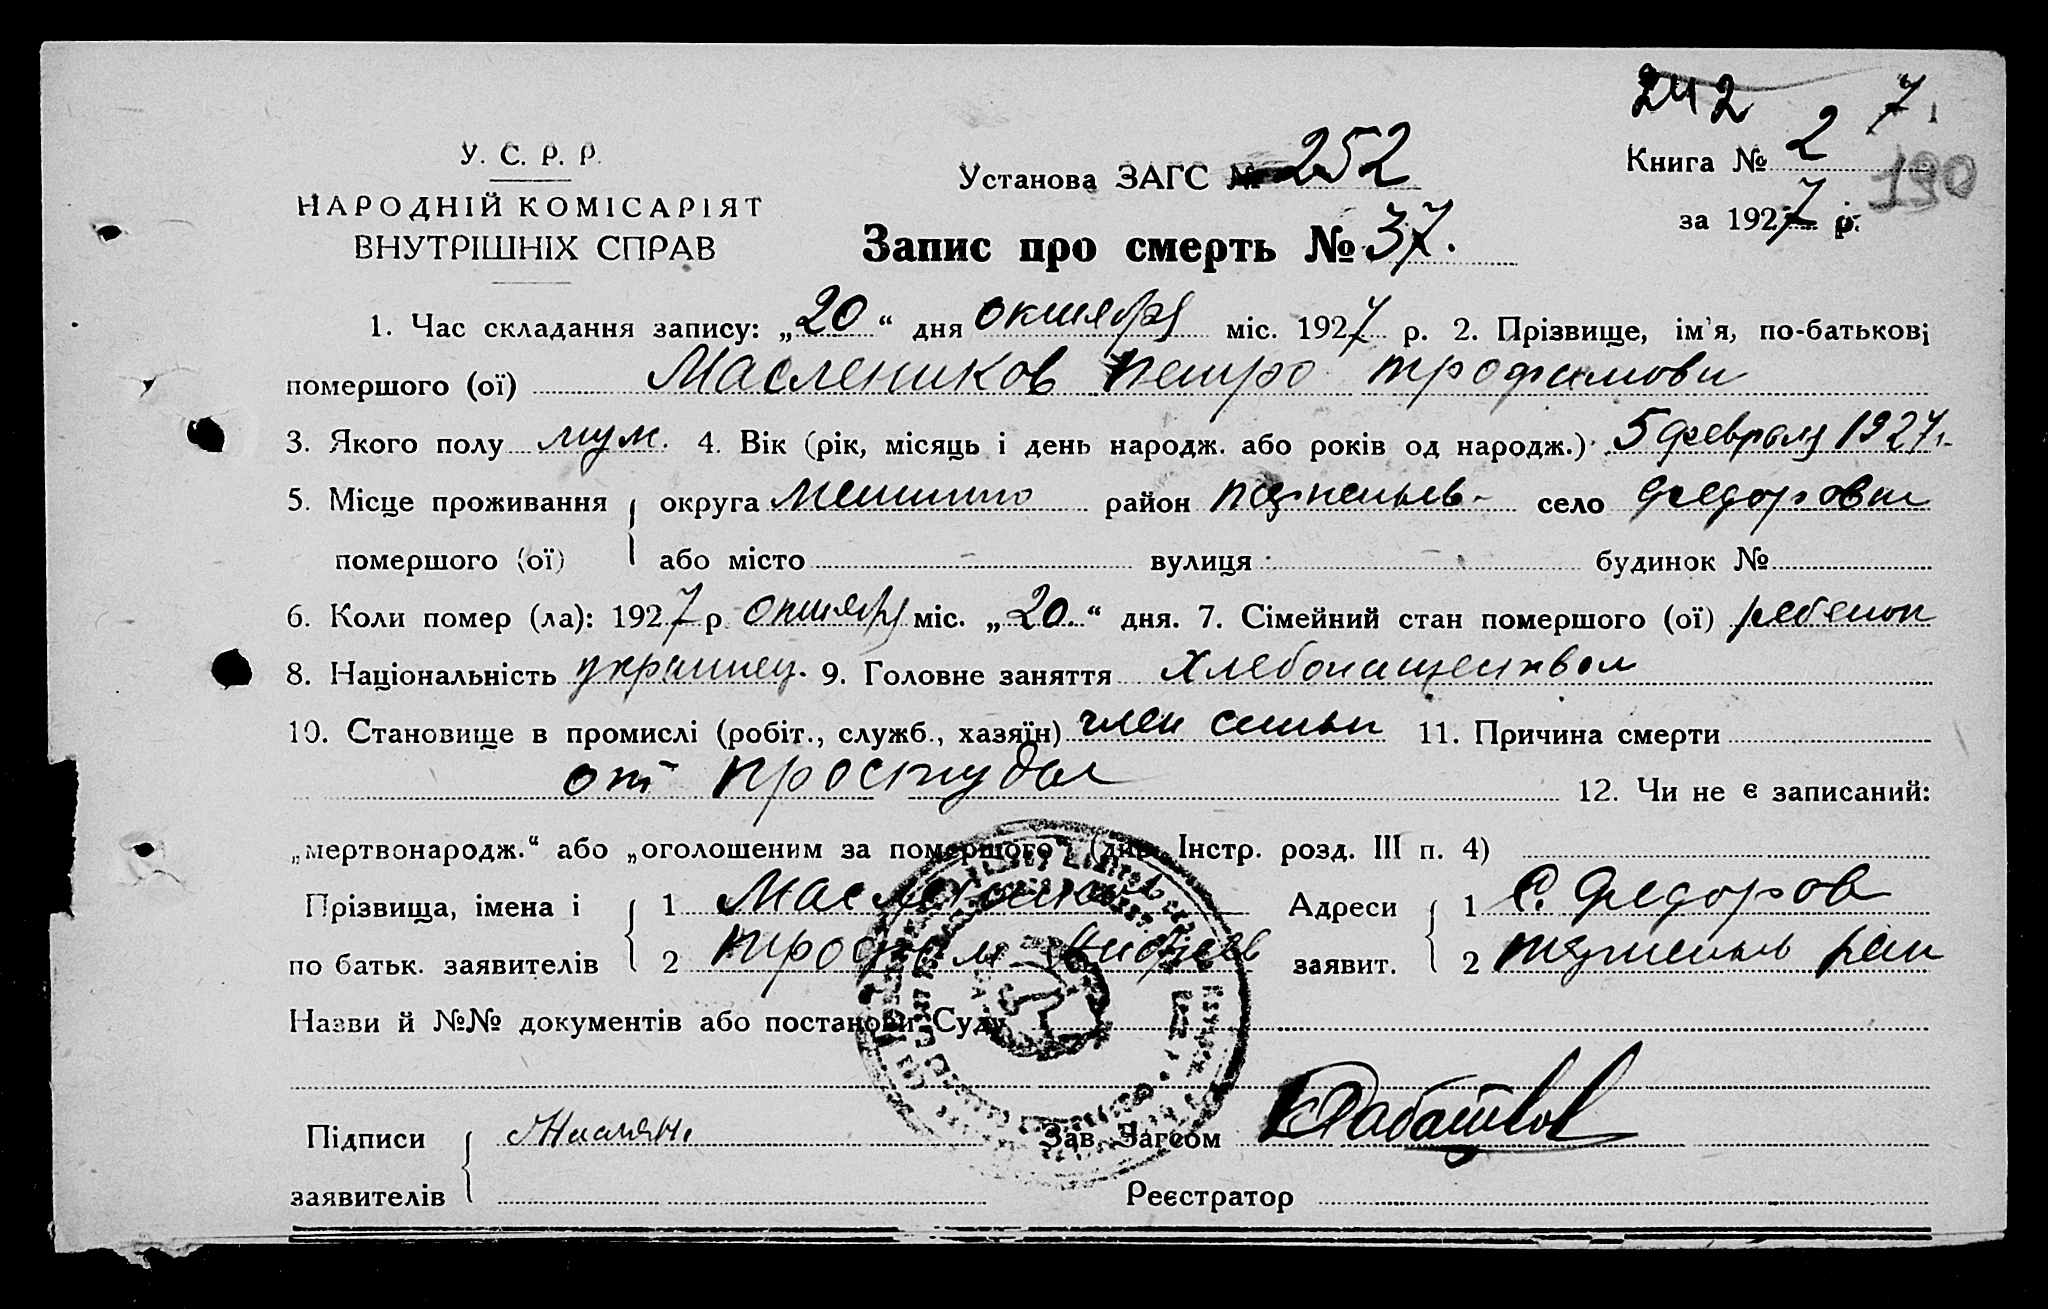 242 7
У. С. Р. Р.
НАРОДНІЙ КОМІСАРІЯТ
ВНУТРІШНІХ СПРАВ
Установа ЗАГС № 252
Книга № 2
190
за 1927 р.
Запис про смерть № 37.
1. Час складання запису: „20“ дня октября міс. 1927 р. 2. Прізвище, ім'я, по-батькові
помершого (ої) Маслеников Петро Трофимови
3. Якого полу муж. 4. Вік (рік, місяць і день народж. або років од народж.) 5 февраля 1927 г.
5. Місце проживання округа район село Федоровки
помершого (ої) або місто — вулиця — будинок №
6. Коли помер (ла): 1927 р октября міс. „20.“ дня. 7. Сімейний стан помершого (ої) ребенок
8. Національність украинец. 9. Головне заняття хлебопашеством
10. Становище в промислі (робіт., служб., хазяїн) член семьи 11. Причина смерти
от простуды
12. Чи не є записаний:
„мертвонародж.“ або „оголошеним за помершого“ (див. Інстр. розд. III п. 4)
Прізвища, імена і 1 Адреси 1 С. Федоров
по батьк. заявителів 2 заявит. 2 рай
Назви й №№ документів або постанови Суду
Підписи Зав. Загсом
заявителів Реєстратор